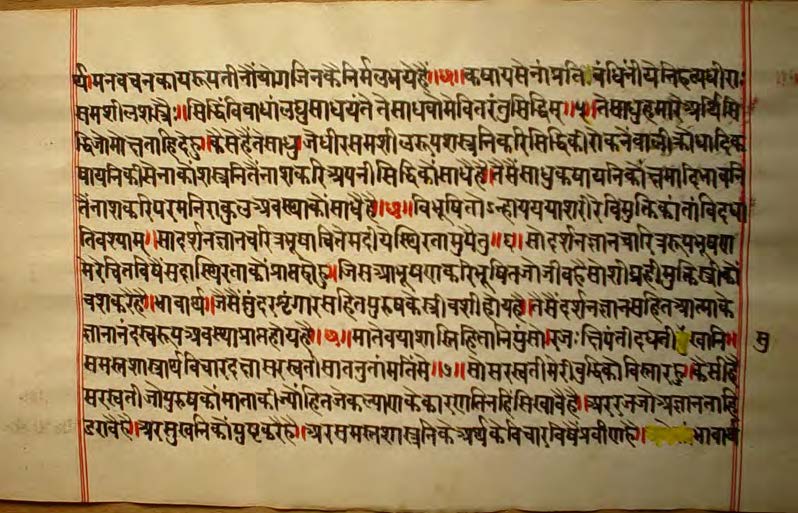 र्या मनवचनकायरूपतीनौंयोगजिनकैनिर्मलभयेहैं॥४॥कषायसेनांप्रतिबंधिनींयेनिहत्यधीराः
समशीलशस्त्रैः॥सिद्धिंविबाधांलघुसाधयंते तेसाधवोमेवितरंतुसिद्धिम्॥५॥तेसाधुहमारैअर्थिसि
द्धिजोमोक्षताहिदेहु।कैसेहैंतेसाधु।जेधीरसमशीलरूपशस्त्रनिकरिसिद्धिकीरोकनैवालीक्रोधादिक
षायनिकीसेनाकोंशस्त्रनितैंनाशकरिअपनीसिद्धिकोंसाधैहै।तैसैंसाधुकषायनिकोंक्षमादिभावनि
तैंनाशकरिपरमनिराकुलअवस्थाकोंसाधैहै॥५॥विभूषितोऽन्हायययाशरीरविमुक्तिकांतांविदधा
तिवश्याम॥सादर्शनज्ञानचरित्रभूषाचित्तेमदीयेस्थिरतामुपैतु॥६॥सोदर्शनज्ञानचारित्ररूपभूषण
मेरेचितविषैंसदास्थिरताकोंप्राप्तहोहु।जिसआभूषणकरिभूषितजोजीवहैसोशीघ्रहीमुक्तिस्त्रीकों
वशकरैहै।भावार्थ।जैसैंसुंदरशृंगारसहितपुरुषकैस्त्रीवशीहोयहै।तैसैंदर्शनज्ञानसहितआत्माकै
ज्ञानानंदस्वरूपअवस्थाप्राप्तहोयहै॥६॥मातेवयाशास्तिहितानिपुंसोरजःक्षिपंतीदधतीसुखानि॥ सु
समस्तशास्त्रार्थविचारदक्षासरस्वतीसातनुतांमतिंमे॥७॥सोसरस्वतीमेरीबुद्धिकोंविस्तारहु।कैसीहै
सरस्वतीजोपुरुषकोंमाताकीज्योंहितजेकल्याणकेकारणतिनहिसिखावैहै।अररजजोअज्ञानताहि
हरावैहै।अरसुखनिकोंपुष्टकरैहै।अरसमस्तशास्त्रनिकेअर्थकेविचारविषैंप्रवीणहै।भावार्थ